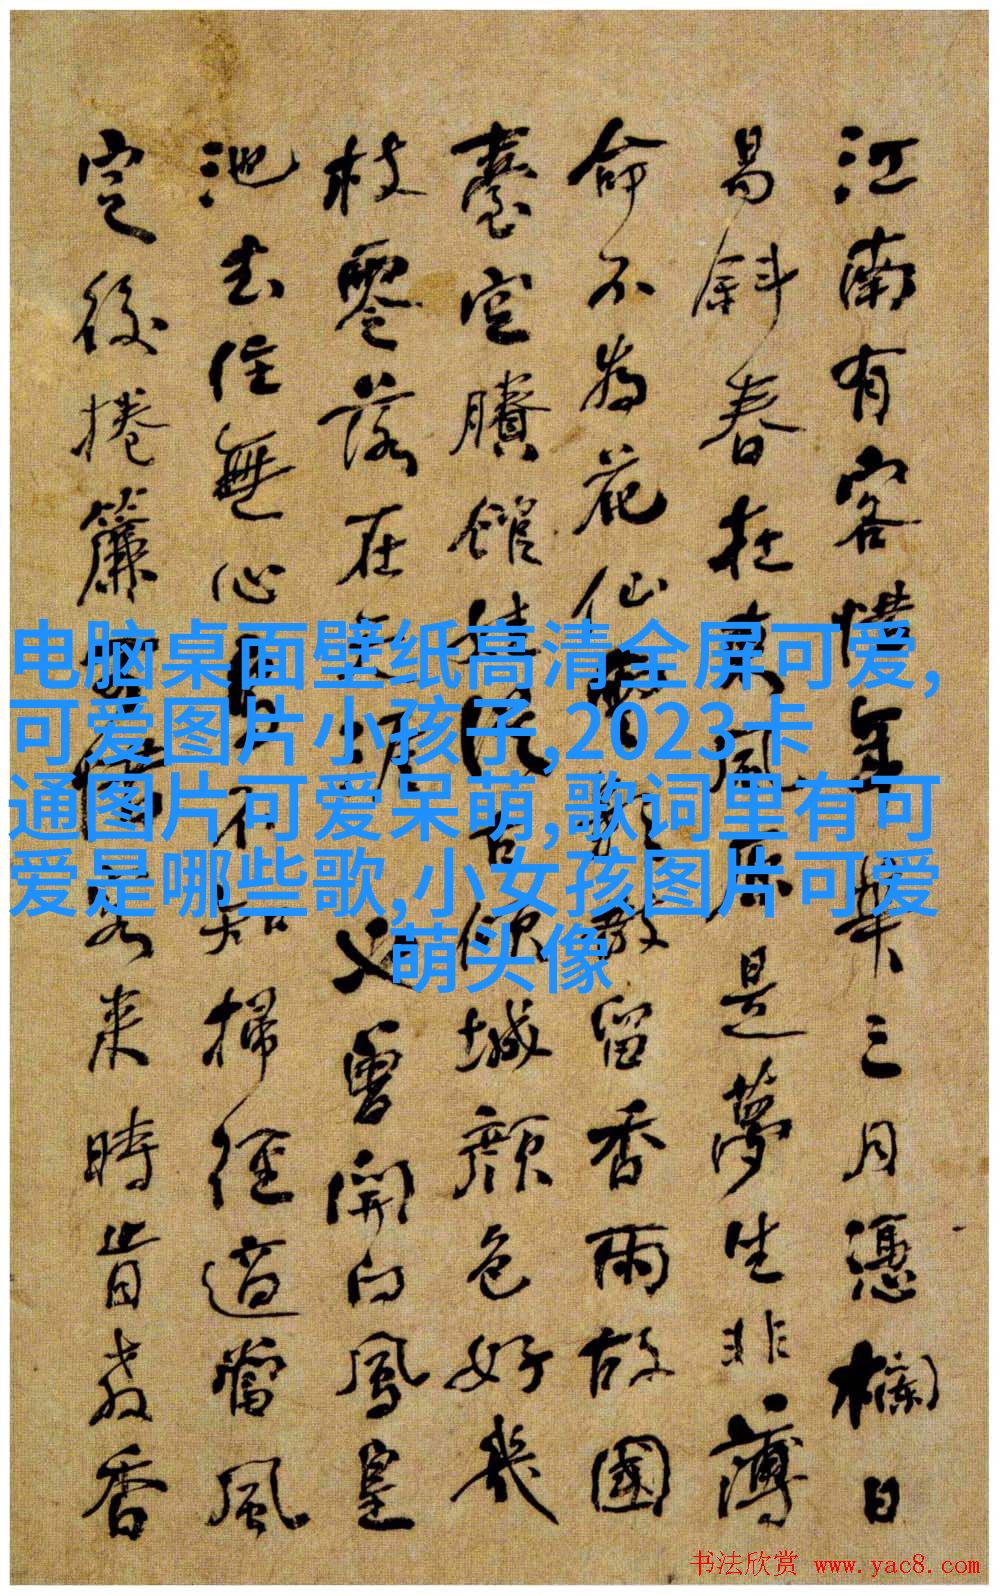 江南有客惜年華三月憑欄日
易斜春在東風原是夢生非薄
命不為花仙 留香雨故國
臺空賸館娃從古傾城顏色好幾
枝零落在
曾開向鳳皇
池去住無心 不知掃徑遮當風
定後捲簾 客來時皆放香
电脑桌面壁纸高清全屏可爱,
可爱图片小孩子,2023卡
通图片可爱呆萌,歌词里有可
爱是哪些歌,小女孩图片可爱
萌头像
书法欣赏 www.yac8.com